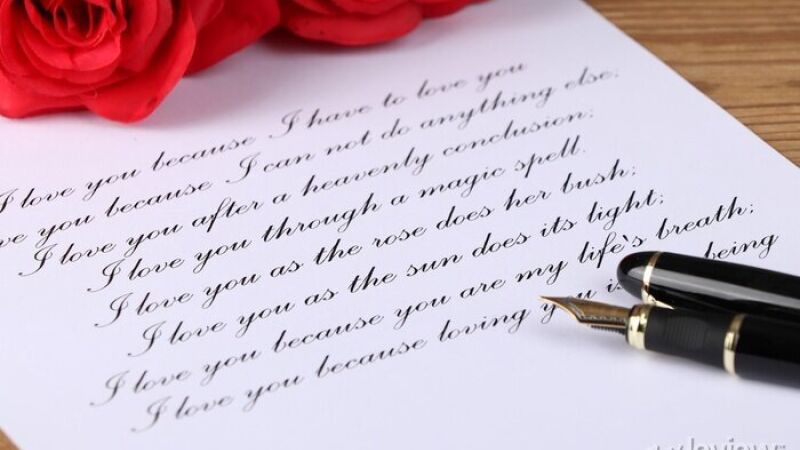 I love you because I have to love you
ve you because I can not do anything else;
I love you after a heavenly conclusion;
I love you through a magic spell.
I love you as the rose does her bush;
I love you as the sun does its light;
I love you because you are my life's breath;
I love you because loving you is being